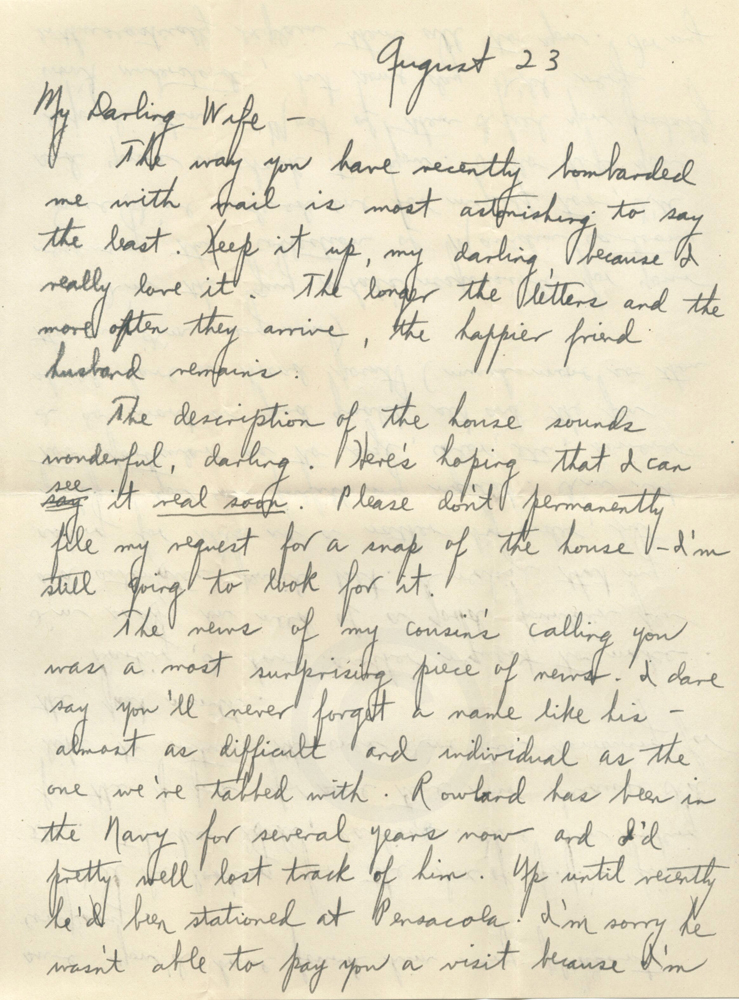 August 23
My Darling Wife -
The way you have recently bombarded
me with mail is most astonishing to say
the least. Keep it up, my darling, because I
really love it. The longer the letters and the
more often they arrive, the happier friend
husband remains.
The description of the house sounds
wonderful, darling. Here's hoping that I can
see
say it real soon. Please don't permanently
file my request for a snap of the house - I'm
still going to look for it.
The news of my cousin's calling you
was a most surprising piece of news. I dare
say you'll never forget a name like his -
almost as difficult and individual as the
one we're tabbed with. Rowland has been in
the Navy for several years now and I'd
pretty well lost track of him. Up until recently
he'd been stationed at Pensacola. I'm sorry he
wasn't able to pay you a visit because I'm